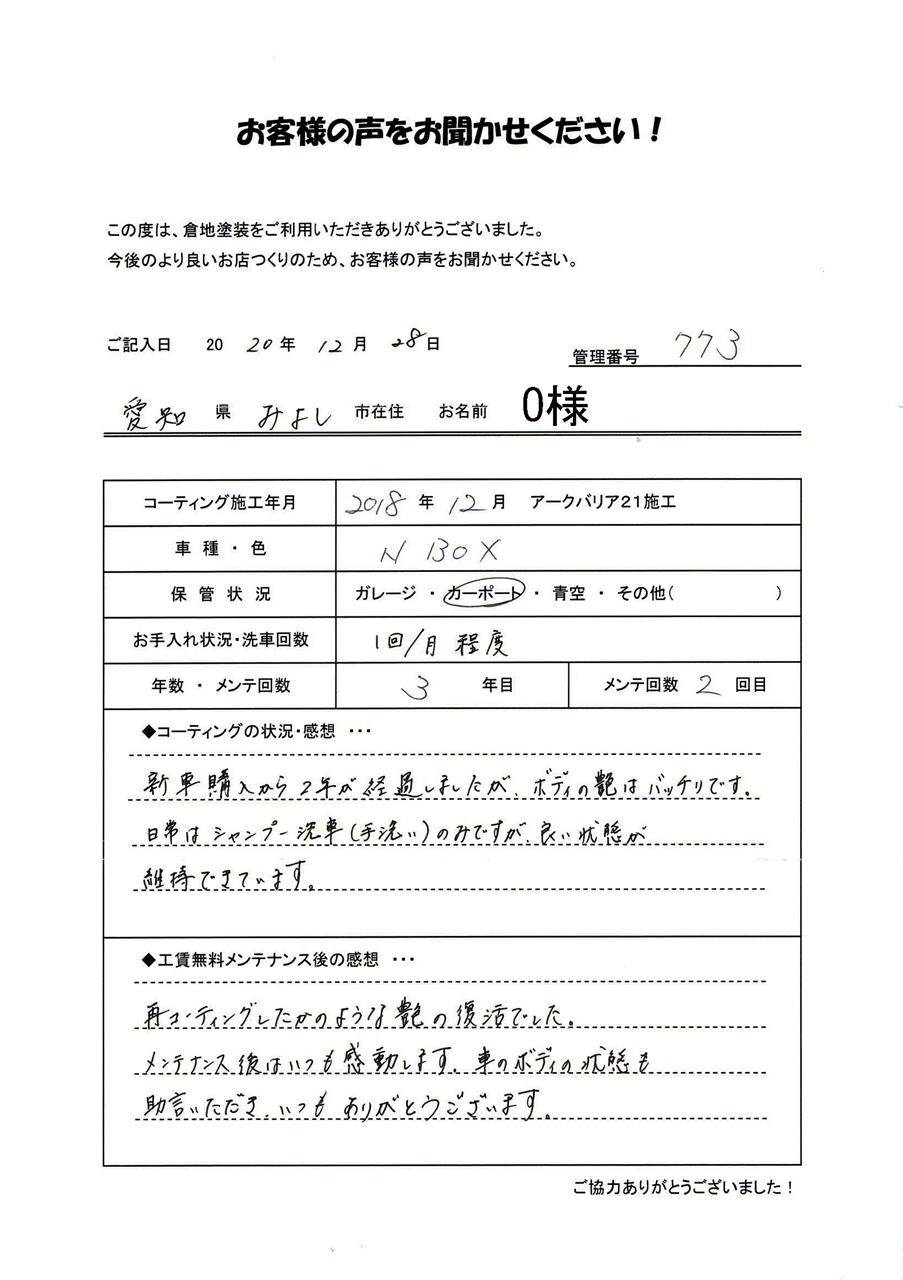 お客様の声をお聞かせください！
この度は、倉地塗装をご利用いただきありがとうございました。
今後のより良いお店つくりのため、お客様の声をお聞かせください。
ご記入日 20 20 年 12 月 28 日
管理番号 773
愛知 県 みよし 市在住 お名前 O様
コーティング施工年月 2018 年 12 月 アークバリア21施工
車 種 ・ 色 N BOX
保 管 状 況 ガレージ ・ カーポート ・ 青空 ・ その他( )
お手入れ状況・洗車回数 1回/月 程度
年数 ・ メンテ回数 3 年目 メンテ回数 2 回目
◆コーティングの状況・感想 ･･･
新車購入から2年が経過しましたが、ボディの艶はバッチリです。
日常はシャンプー洗車(手洗い)のみですが、良い状態が
維持できています。
◆工賃無料メンテナンス後の感想 ･･･
再コーティングしたかのような艶の復活でした。
メンテナンス後はいつも感動します。車のボディの状態も
助言いただき、いつもありがとうございます。
ご協力ありがとうございました！